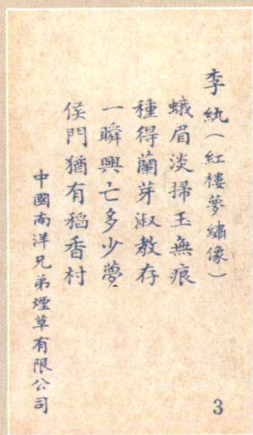 李紈(紅樓夢繡像)
蛾眉淡掃玉無痕
種得蘭芽淑教存
一瞬興亡多少夢
侯門猶有稻香村
中國南洋兄弟煙草有限公司
3